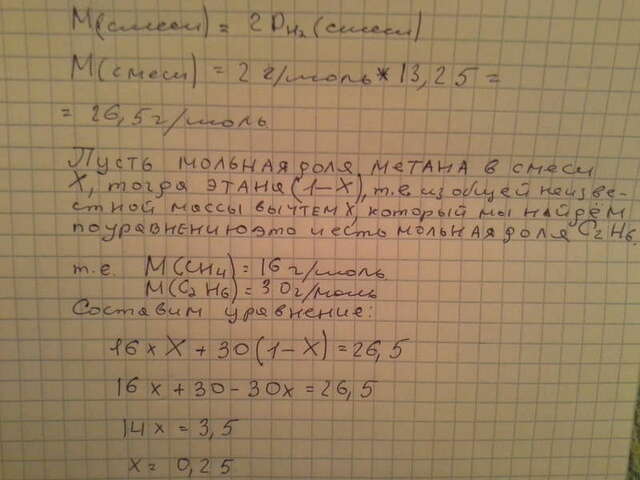 M(смеси) = 2DH₂(смеси)
M(смеси) = 2 г/моль * 13,25 =
= 26,5 г/моль
Пусть мольная доля метана в смеси
X, тогда этана (1-X), т.е. из общей неизве-
стной массы вычтем X, который мы найдём
по уравнению это и есть мольная доля C₂H₆.
т.е. M(CH₄) = 16 г/моль
M(C₂H₆) = 30 г/моль
Составим уравнение:
16 x X + 30(1-X) = 26,5
16x + 30 - 30x = 26,5
14x = 3,5
x = 0,25